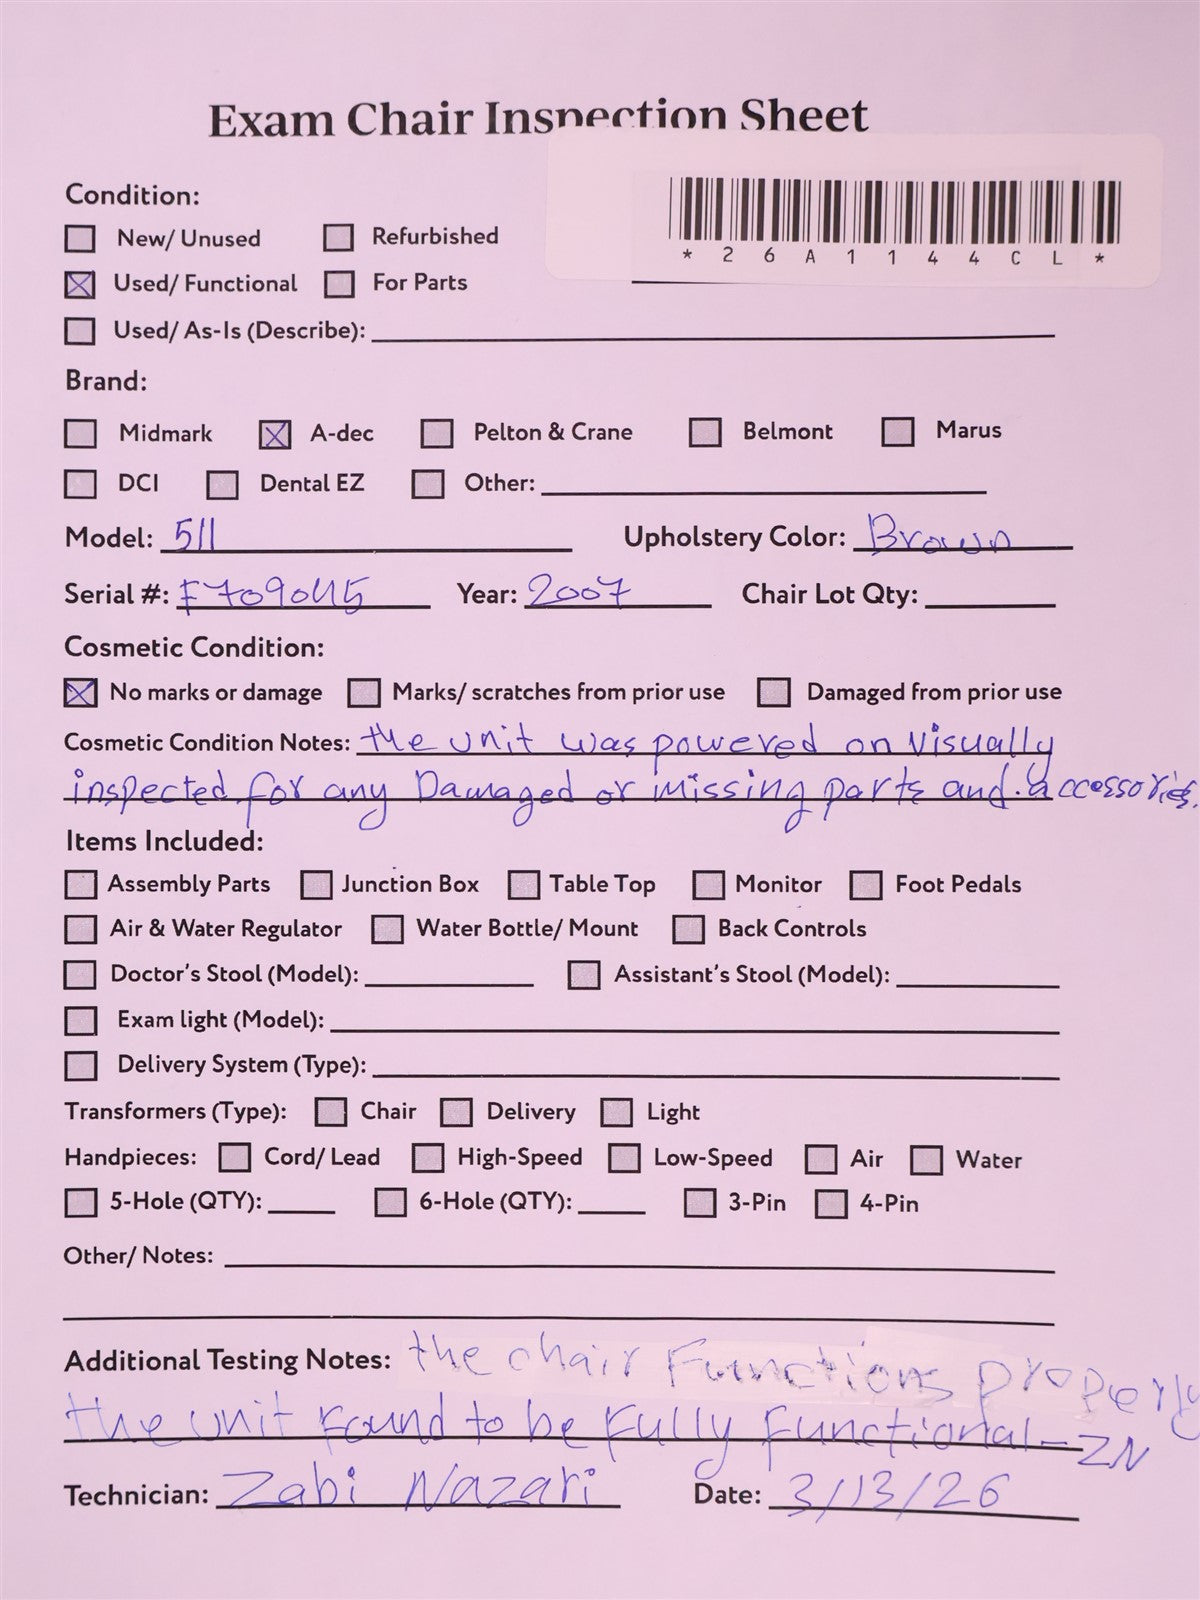 Exam Chair Inspection Sheet
*26A1144CL*
Condition:
New/ Unused Refurbished
Used/ Functional For Parts
Used/ As-Is (Describe):
Brand:
Midmark A-dec Pelton & Crane Belmont Marus
DCI Dental EZ Other:
Model: 511 Upholstery Color: Brown
Serial #: F709045 Year: 2007 Chair Lot Qty:
Cosmetic Condition:
No marks or damage Marks/ scratches from prior use Damaged from prior use
Cosmetic Condition Notes: the unit was powered on visually
inspected for any Damaged or missing parts and accessories.
Items Included:
Assembly Parts Junction Box Table Top Monitor Foot Pedals
Air & Water Regulator Water Bottle/ Mount Back Controls
Doctor's Stool (Model): Assistant's Stool (Model):
Exam light (Model):
Delivery System (Type):
Transformers (Type): Chair Delivery Light
Handpieces: Cord/ Lead High-Speed Low-Speed Air Water
5-Hole (QTY): 6-Hole (QTY): 3-Pin 4-Pin
Other/ Notes:
Additional Testing Notes: the chair Functions properly
the unit Found to be Fully Functional-ZN
Technician: Zabi Nazari Date: 3/13/26